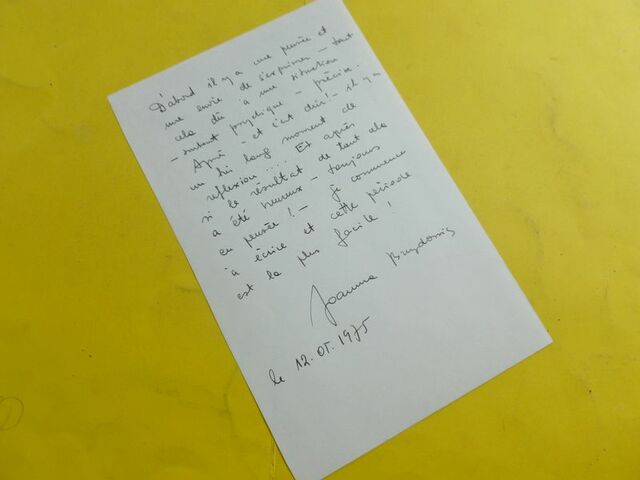 D'abord il y a une pensée et
une envie de s'exprimer – tout
cela dû à une situation
– surtout psychique – précise.
Après – et c'est dur! – il y a
un très long moment de
reflexion.... Et après
si le résultat de tout cela
a été heureux – toujours
en pensée! – je commence
à écrire et cette période
est la plus facile!
Joanna Bruzdowicz
le 12.05.1975